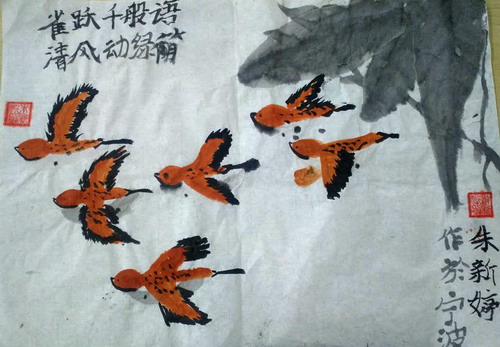 雀跃千般语
清风动绿
朱新婷
作於宁波